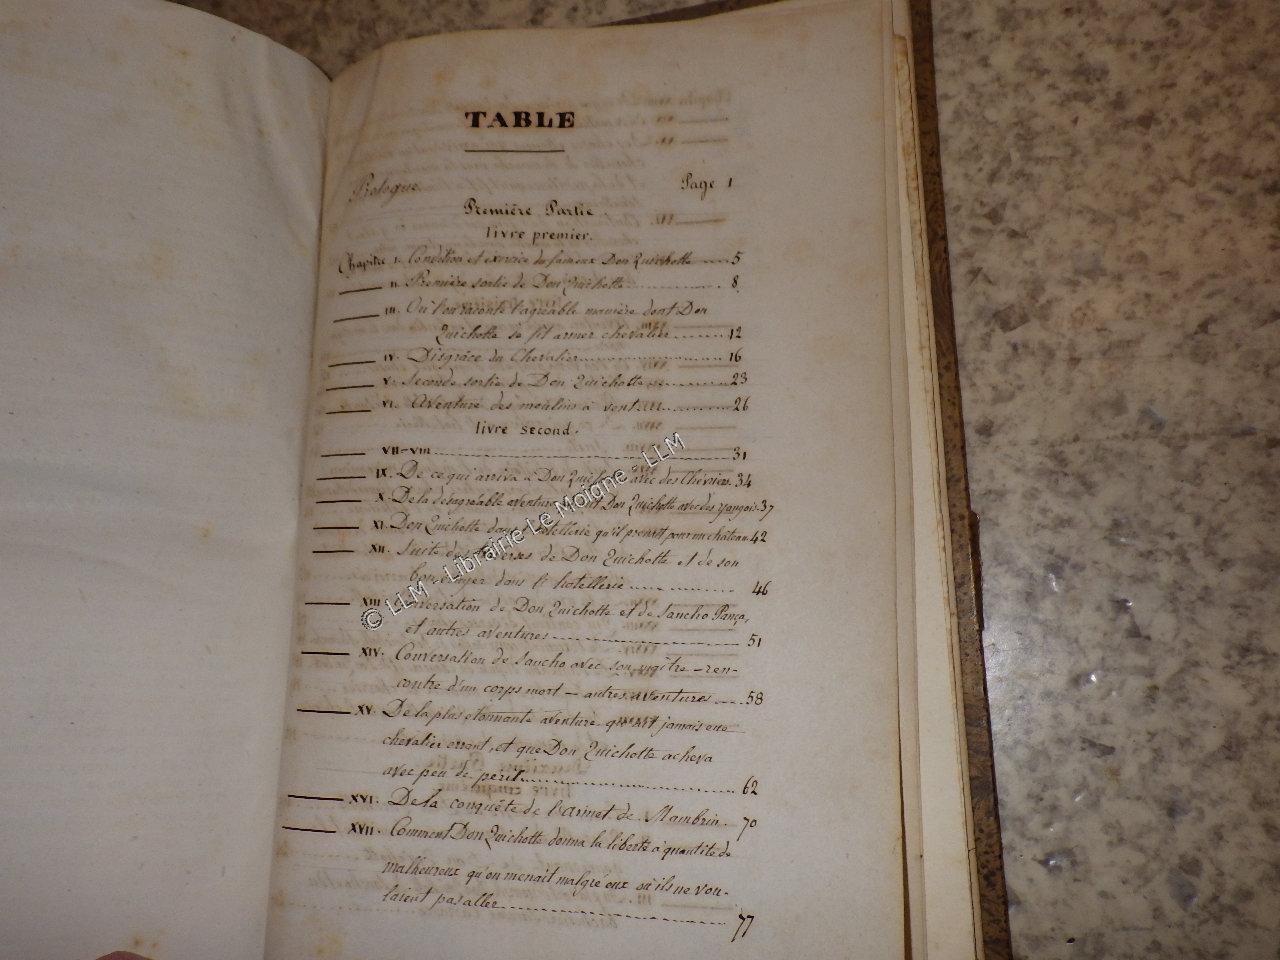 TABLE
Prologue. Page 1
Première Partie
livre premier.
Chapitre I. Condition et exercice du fameux Don Quichotte 5
II. Première sortie de Don Quichotte 8
III. Où l'on raconte l'agréable manière dont Don
Quichotte se fit armer chevalier 12
IV. Disgrâce du Chevalier 16
V. Seconde sortie de Don Quichotte 23
VI. Aventure des moulins à vent 26
livre second.
VII-VIII 31
IX. De ce qui arriva à Don Quichotte avec des Chévriers 34
X. De la désagréable aventure Don Quichotte avec des yangois. 37
XI. Don Quichotte dans l'hotellerie qu'il prenait pour un château. 42
XII. Suite des traverses de Don Quichotte et de son
bon écuyer dans l'hotellerie 46
XIII. Conversation de Don Quichotte et de Sancho Pança,
et autres aventures 51
XIV. Conversation de Sancho avec son maître - ren-
contre d'un corps mort - autres aventures 58
XV. De la plus étonnante aventure qu'ait jamais eue
chevalier errant, et que Don Quichotte acheva
avec peu de peril 62
XVI. De la conquête de l'armet de Mambrin. 70
XVII. Comment Don Quichotte donna la liberté à quantité de
malheureux qu'on menait malgré eux où ils ne vou-
laient pas aller 77
© LLM Librairie Le Moigne - LLM